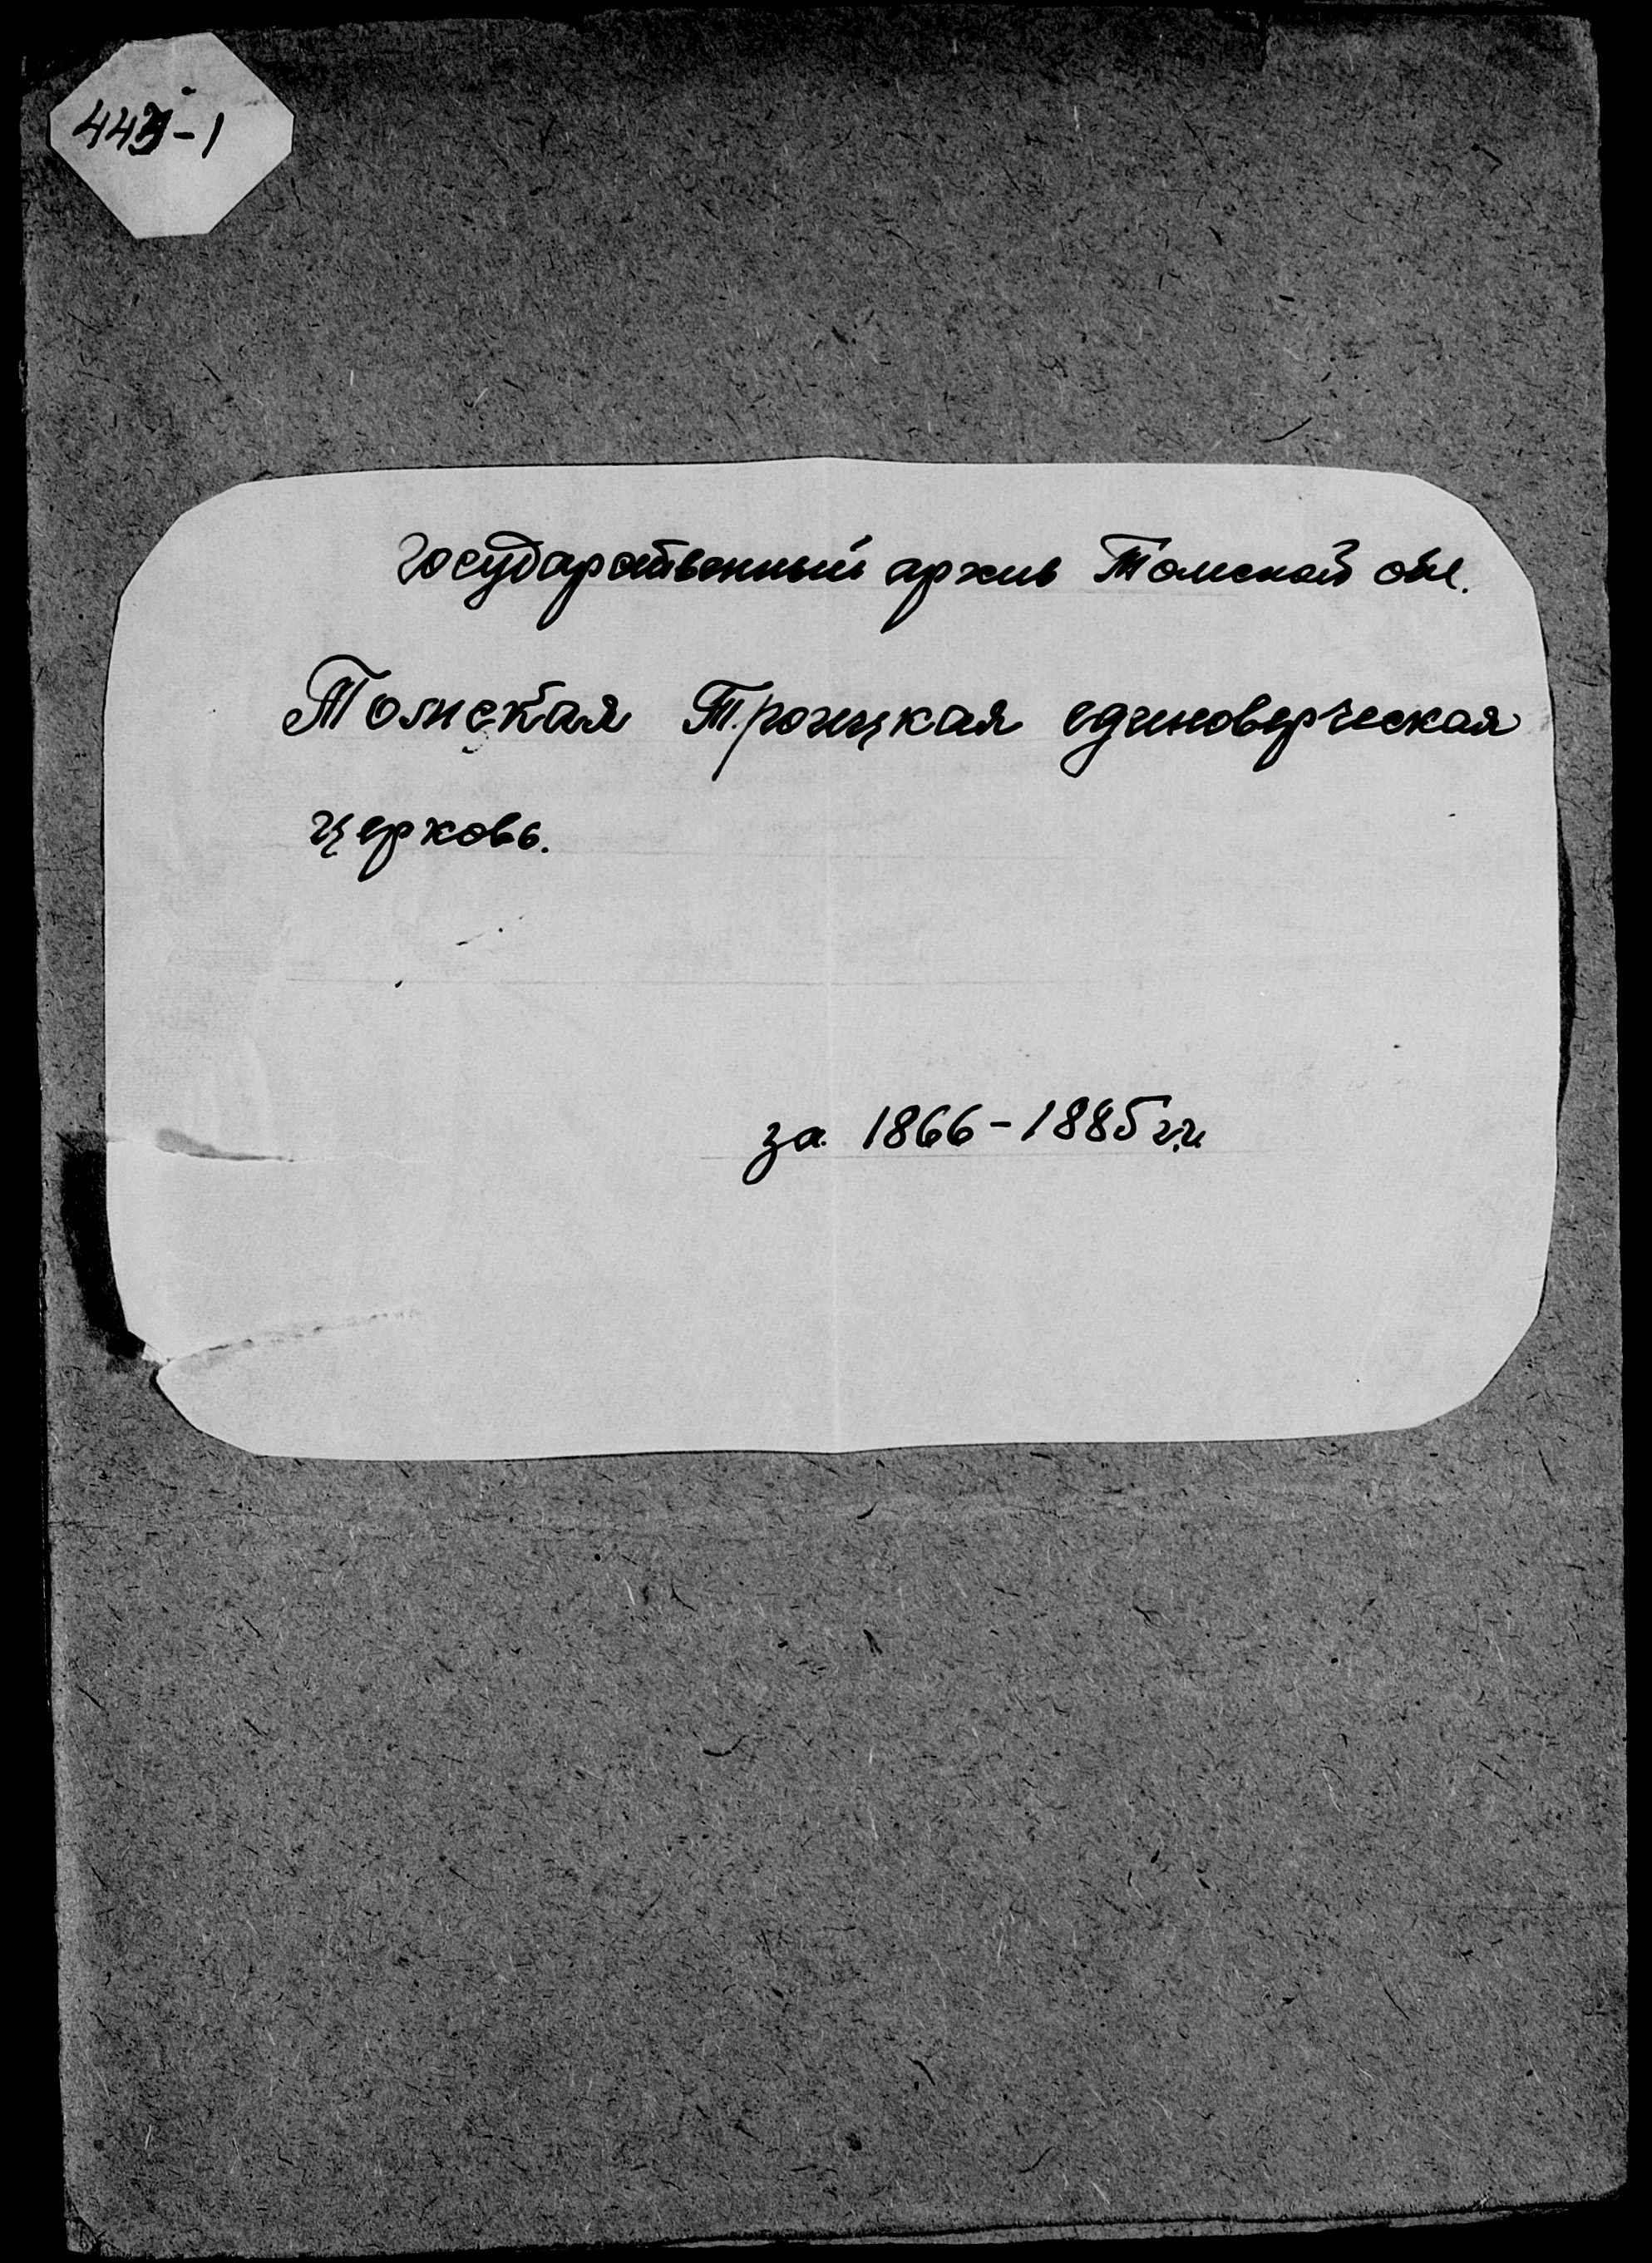 Государственный архив Томской обл.
Томская Троицкая единоверческая
церковь.
за 1866-1885 г.г.